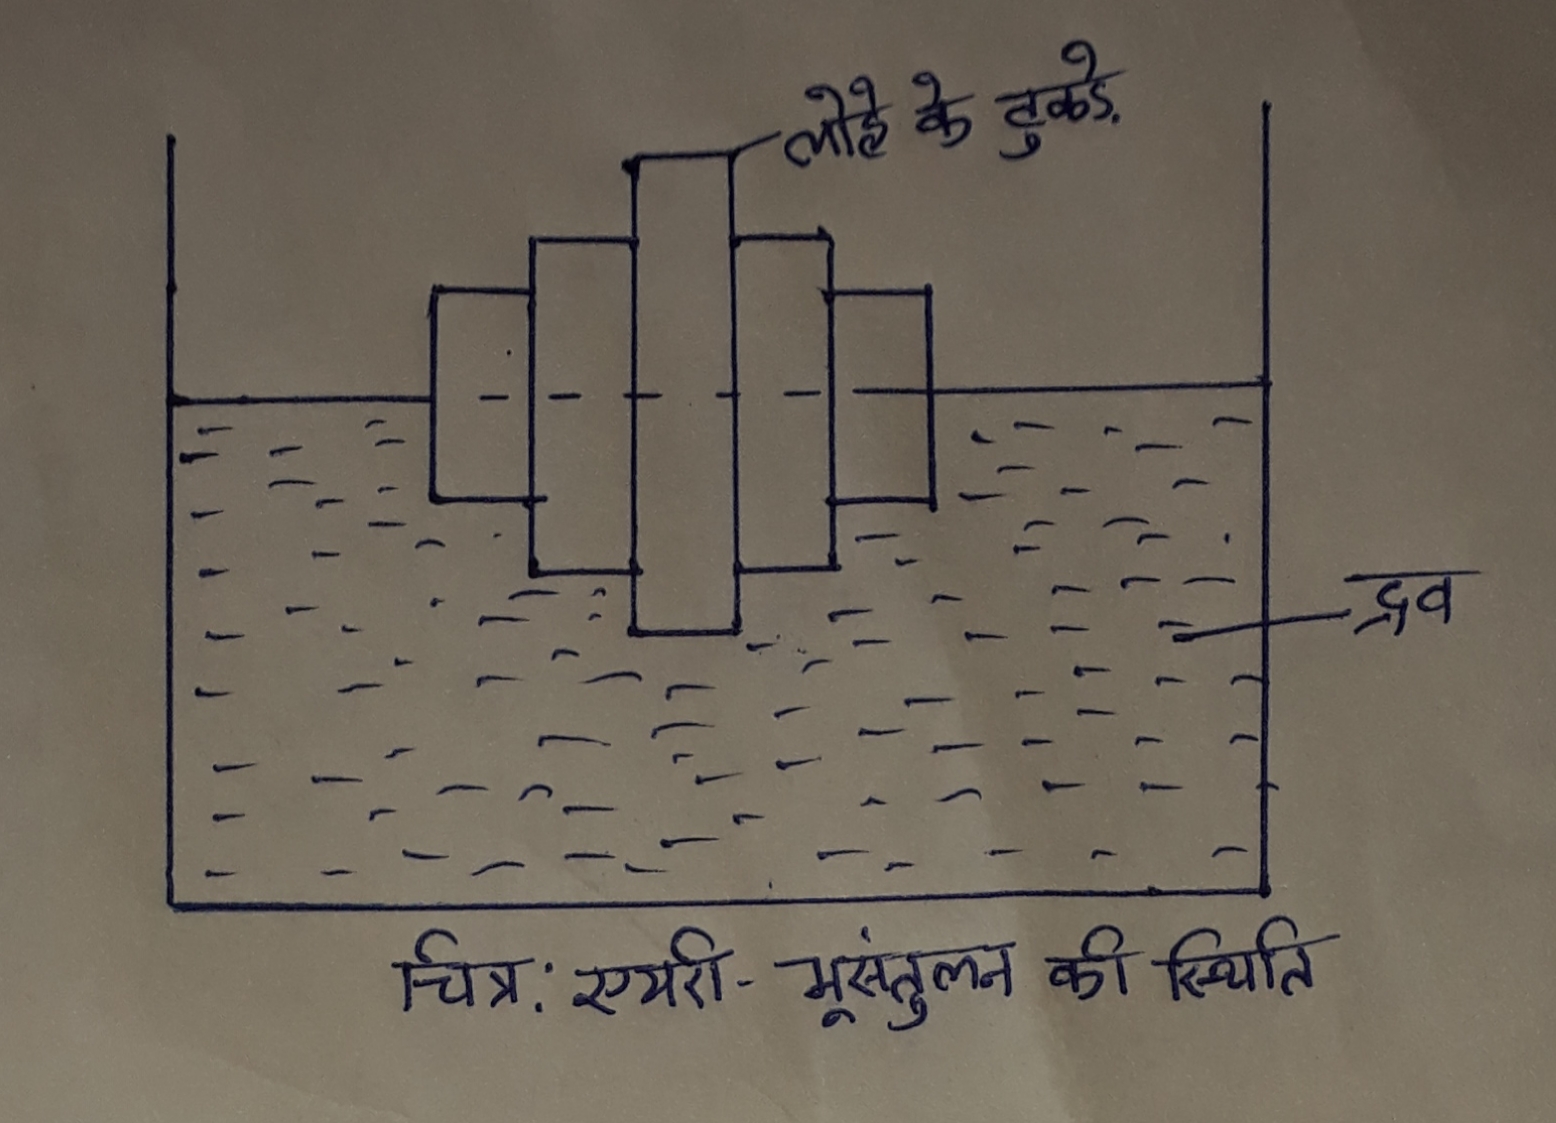 लोहे के टुकडे.
द्रव
चित्र: एयरी- भूसंतुलन की स्थिति